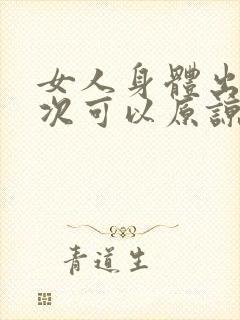 女人身體出
次可以原諒
青道生